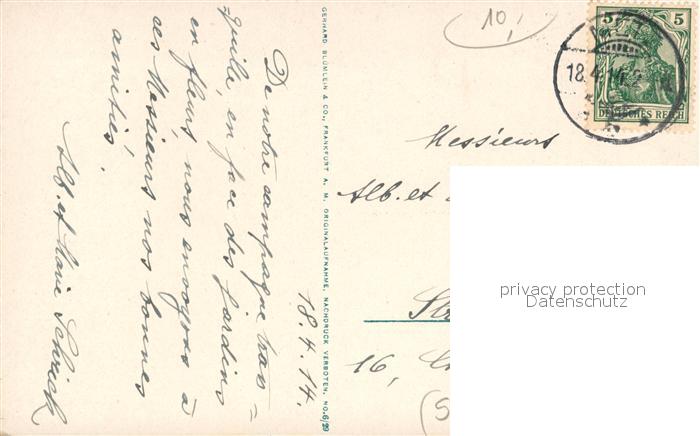 18.4.14.
De notre campagne tran=
quille, en face des jardins
en fleurs, nous envoyons à
ces Messieurs nos bonnes
amitiés,
Alb. et Marie Schrick
GERHARD BLÜMLEIN & CO., FRANKFURT A. M. ORIGINALAUFNAHME, NACHDRUCK VERBOTEN. NO. 6/29
10,-
5 5
DEUTSCHES REICH
18.4.14
Messieurs
Alb. et
16,
privacy protection
Datenschutz